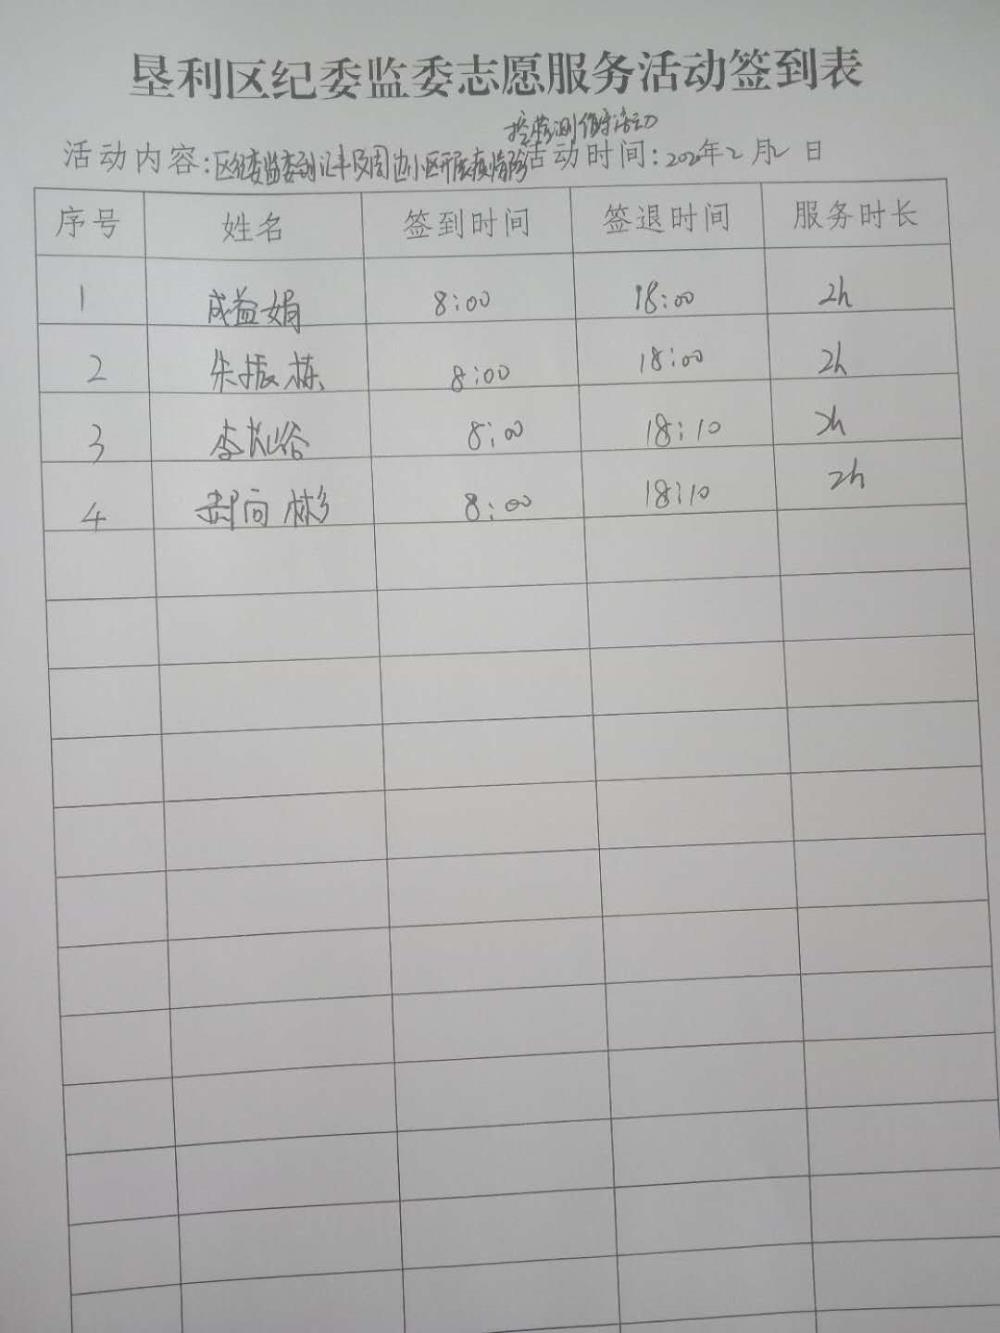 垦利区纪委监委志愿服务活动签到表
控检测值守活动
活动内容:区纪委监委到汇丰及周边小区开展疫情防 活动时间:2020年2月2日
序号 姓名 签到时间 签退时间 服务时长
1 成益娟 8:00 18:00 2h
2 朱振栋 8:00 18:00 2h
3 李长峪 8:00 18:10 2h
4 封向彬 8:00 18:10 2h